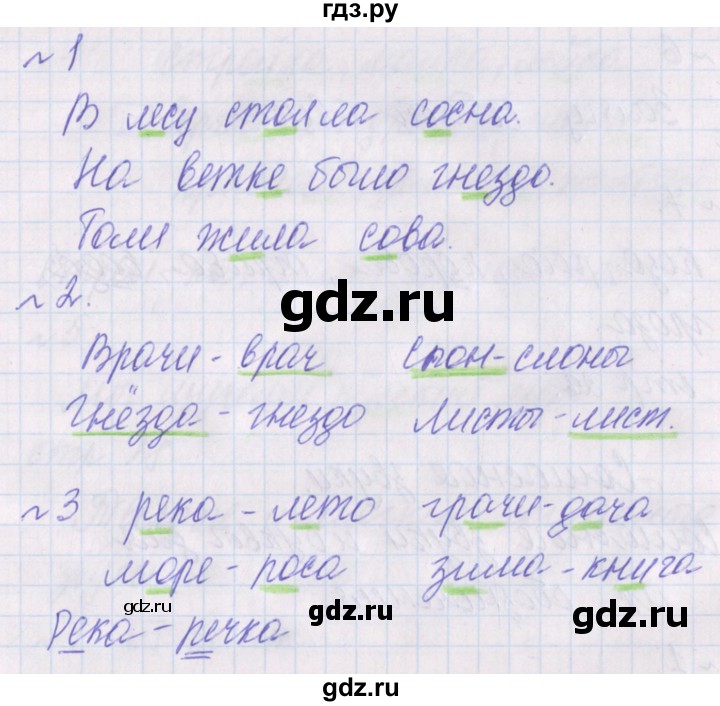 гдз.ру
~ 1
В лесу стояла сосна.
На ветке было гнездо.
Там жила сова.
gdz.ru
~ 2.
Врачи - врач Слон - слоны
Гнёзда - гнездо Листы - лист.
~ 3 река - лето грачи - дача
море - роса зима - книга
gdz.ru gdz.ru gdz.ru
Река - речка
gdz.ru